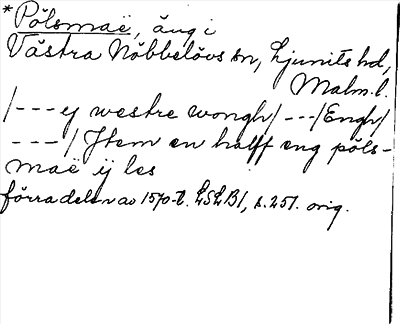 *Pölsmaë, äng i
Västra Nöbbelövs sn, Ljunits hd,
Malm. l.
/--- ej westre wongh/ ---/Engh/
---/ Jtem en halff eng pöls-
maë ij les
förra delen av 1570-t. LSLB1, s. 251. orig.